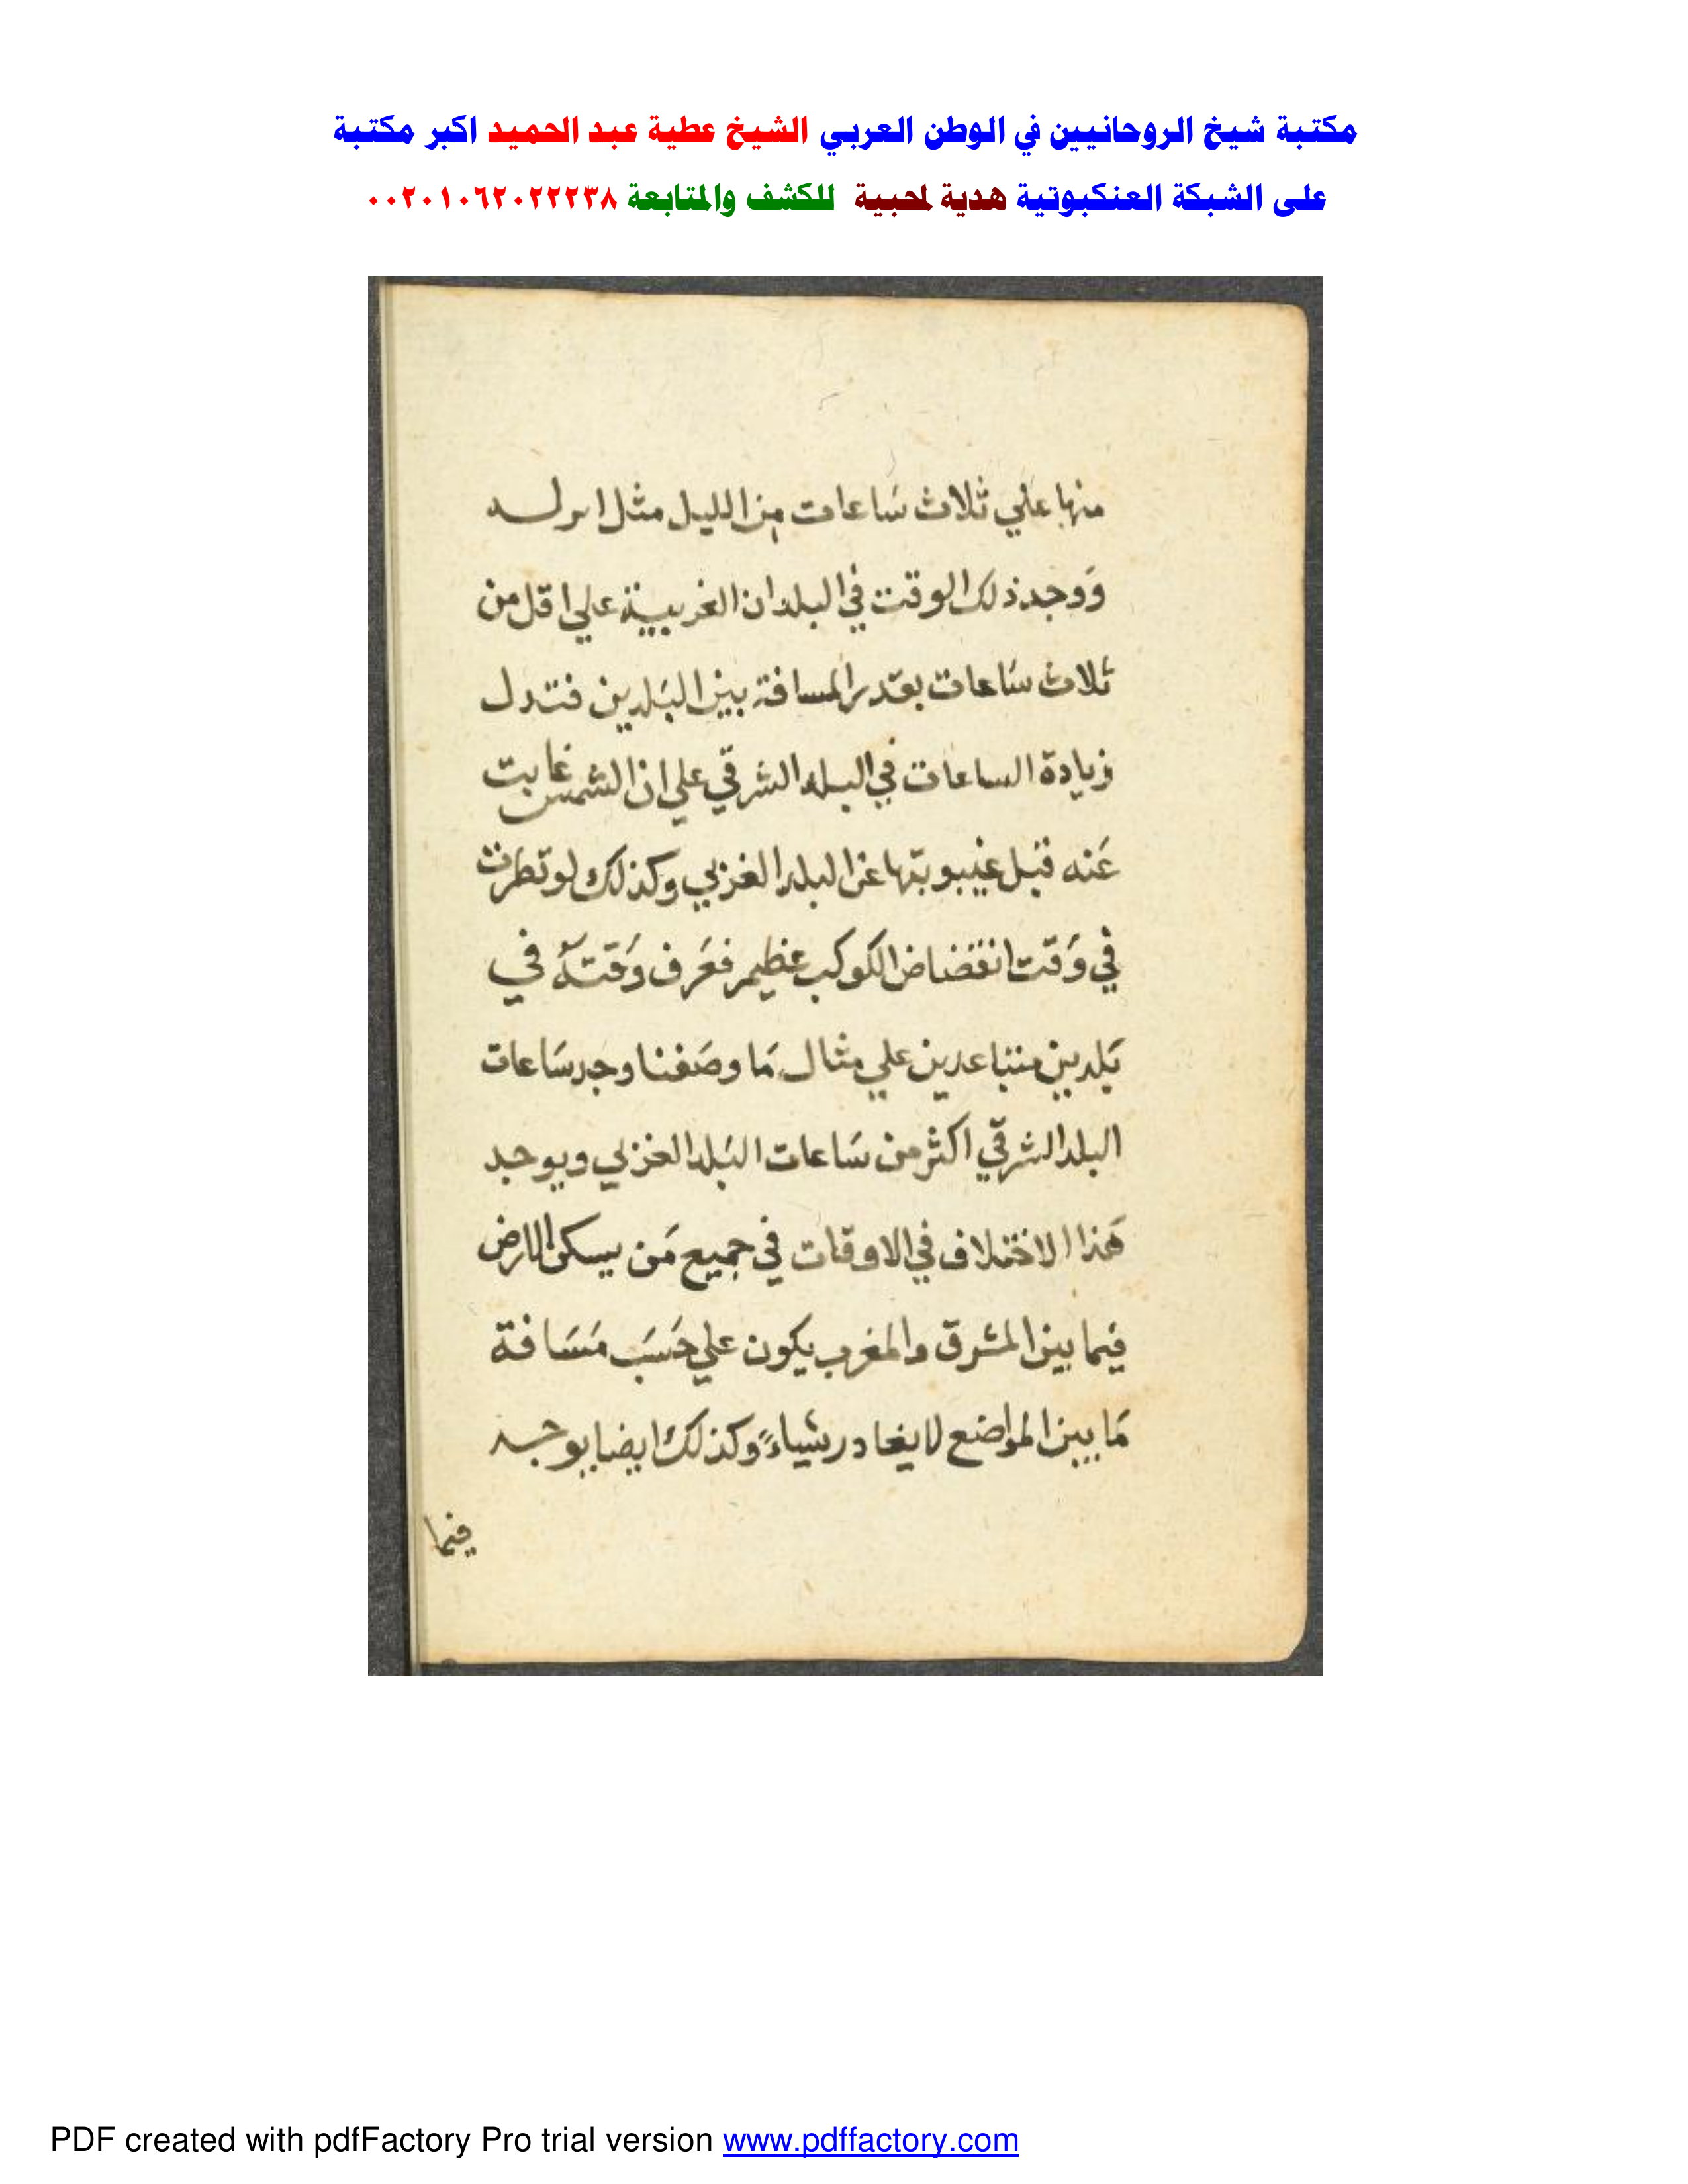 مكتبة شيخ الروحانيين في الوطن العربي الشيخ عطية عبد الحميد اكبر مكتبة
على الشبكة العنكبوتية هدية لمحبية للكشف والمتابعة ٠٠٢٠١٠٦٢٠٢٢٢٣٨
منها علي ثلاث سَاعات من الليل مثل
وَوجد ذلك الوقت في البلدان الغربيية علي اقل من
ثلاث سَاعات بقدر المسافة بين البَلدين فتدل
زيادة الساعات في البلد الشرقي علي ان الشمس غابت
عَنه قبل غيبوبتها عن البلد الغزبي وكذلك لو نظرت
في وَقت انقضاض الكوكب عظيم فعَرف وَقته في
بَلدين متباعدين علي مثال مَا وصَفنا وجد سَاعات
البلد الشرقي اكثر من سَاعات البَلد الغزبي ويوجد
هَذا الاختلاف في الاوقات في جميع مَن يسكن الارض
فيما بين المشرق والمغرب يكون علي حَسَب مَسَافة
مَا بين المواضع لا يغادر شياءً وكذلك ايضا يوجد
فيما
PDF created with pdfFactory Pro trial version www.pdffactory.com